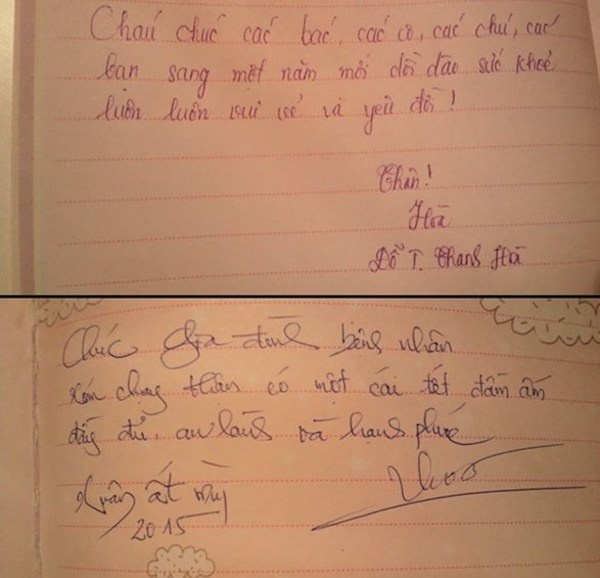 Cháu chúc các bác, các cô, các chú, các
bạn sang một năm mới dồi dào sức khoẻ
luôn luôn vui vẻ và yêu đời!
Thân!
Hà
Đỗ T. Thanh Hà
Chúc gia đình bệnh nhân
xóm chạy thận có một cái tết đầm ấm
đầy đủ, an lành và hạnh phúc
Xuân ất mùi
2015